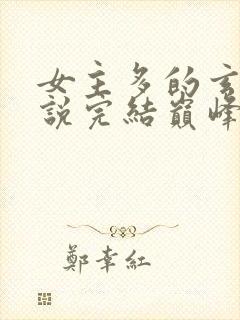 女主多的玄
說完結巔峰
鄭幸紅